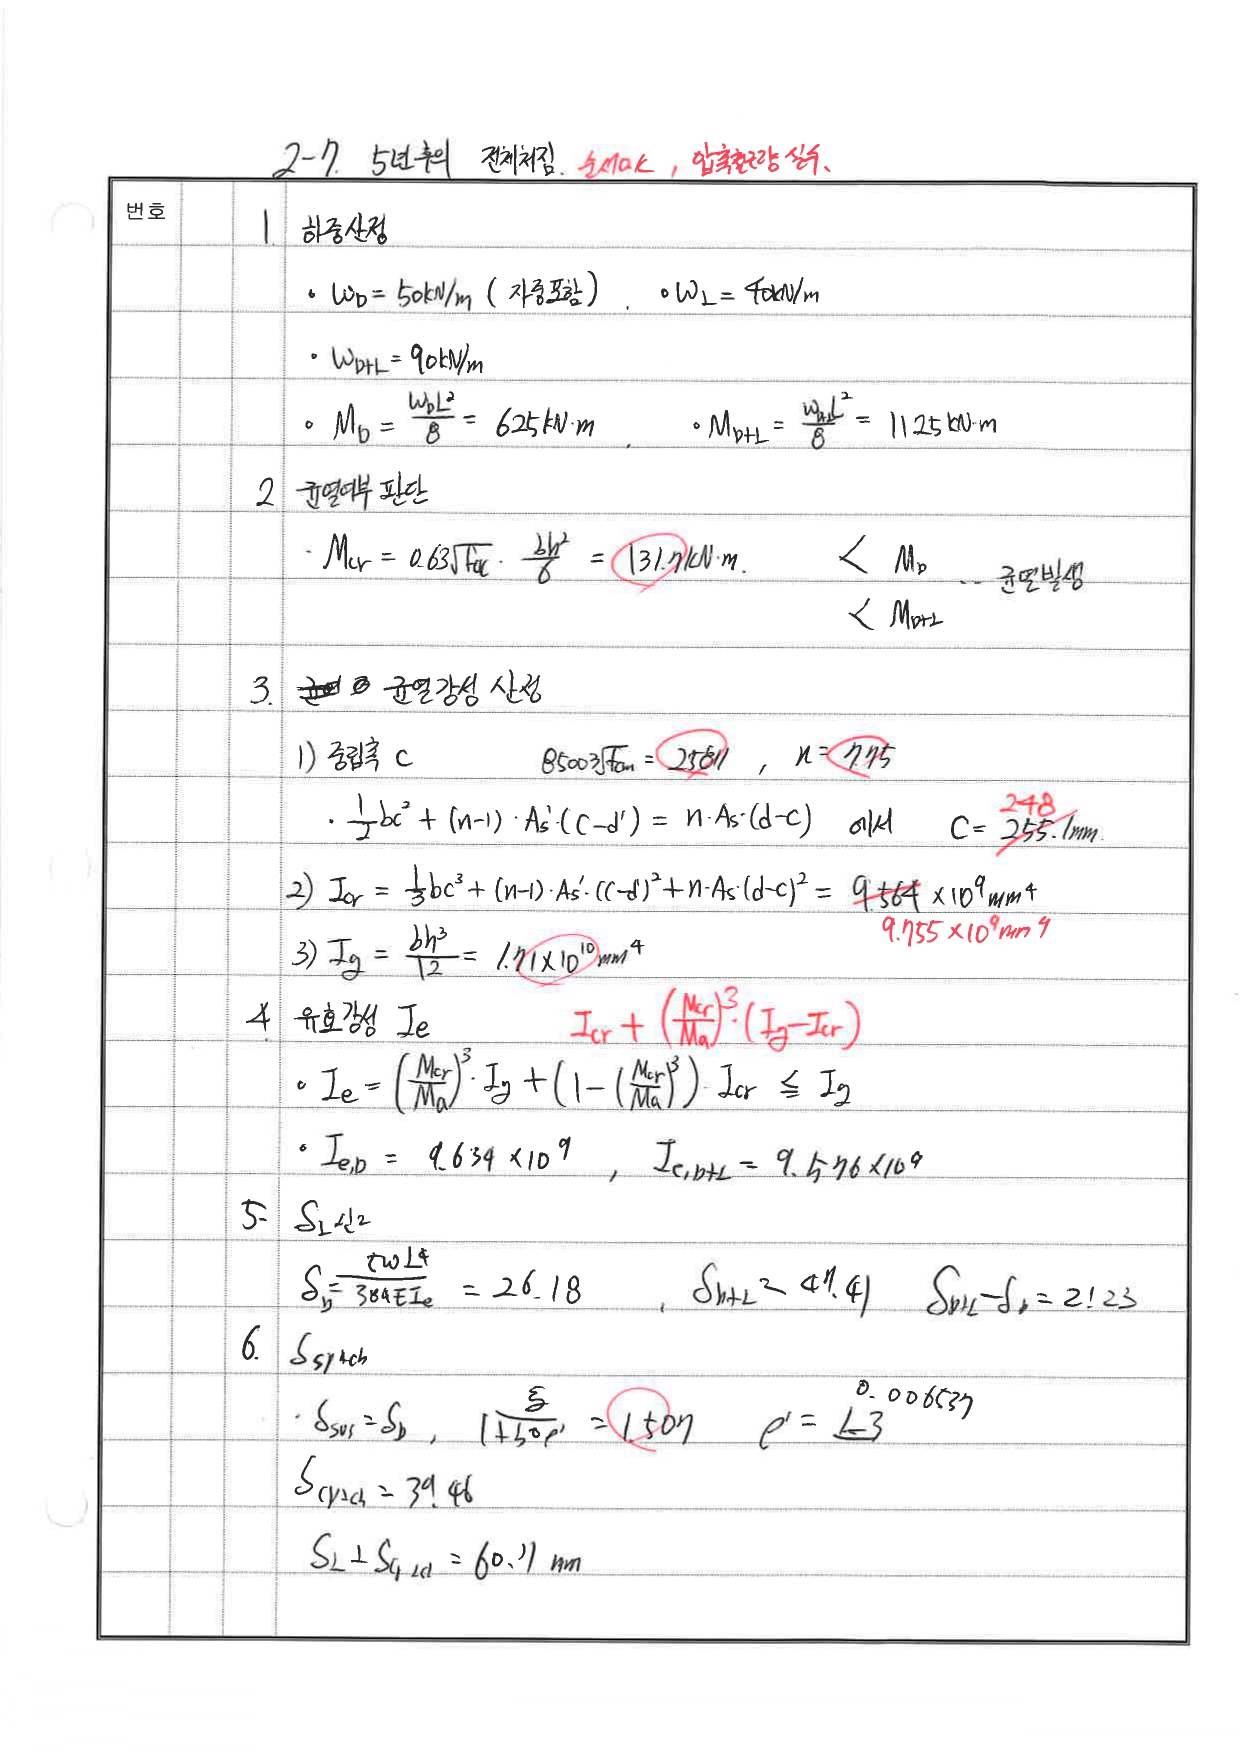 2-7. 5년후의 전체처짐. 순서OK, 압축철근량 실수.
번호
1 하중산정
• W_D = 50kN/m (자중포함), • W_L = 40kN/m
• W_D+L = 90kN/m
• M_D = W_D L²/8 = 625kN·m, • M_D+L = W_D+L L²/8 = 1125kN·m
2 균열여부 판단
· Mcr = 0.63√fck · bh²/6 = 131.7kN·m. < M_D ... 균열발생
< M_D+L
3. 균열강성 산정
1) 중립축 c 8500∛fcu = 25811, n = 7.75
· 1/2 bc² + (n-1)·As'·(c-d') = n·As·(d-c) 에서 C = 255.1mm. 248
2) Icr = 1/3 bc³ + (n-1)·As'·(c-d')² + n·As·(d-c)² = 9.564 ×10⁹mm⁴
9.755 ×10⁹mm⁴
3) Ig = bh³/12 = 1.71×10¹⁰mm⁴
4 유효강성 Ie Icr + (Mcr/Ma)³·(Ig-Icr)
• Ie = (Mcr/Ma)³·Ig + (1-(Mcr/Ma)³)·Icr ≦ Ig
• Ie,D = 9.634 ×10⁹, Ie,D+L = 9.576×10⁹
5. δ_L 산정
δ_D = 5wL⁴/384EIe = 26.18, δ_D+L = 47.41 δ_D+L - δ_D = 21.23
6. δ_sp+ch
· δsus = δ_D, ξ/1+50ρ' = 1.507 ρ' = 0.006537
δ_cp+ch = 39.46
δ_L + δ_cp+ch = 60.71 mm